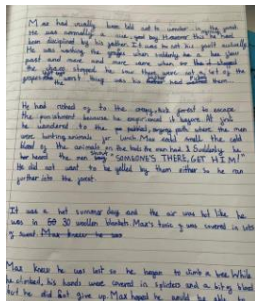 Max had usually been told not to wander in the forest.
He was normally a nice good boy. However this he had
been disciplined by his father. It was not his fault actually
he was washing the grapes when suddenly he a bee flew
past and more and more came when
the place stopped he knew there were not a lot of the
grapes worst thing was his father had them.
He had rushed of to the forest to escape
the punishment because he experienced it before. At first
he wandered to the path where the men
were hunting animals for lunch. Max could smell the cold
blood of the animals on the tools the men had. Suddenly he
heard the man "SOMEONE'S THERE, GET HIM!"
He did not want to be yelled by them either so he ran
further into the forest.
It was a hot summer day and the air was but like he
was in 30 woollen blankets. Max's was covered in lots
of sweat.
Max knew he was lost so he began to climb a tree. While
he climbed, his hands were covered in splinters and a bit of blood
but he did not give up. Max hoped he would be able to